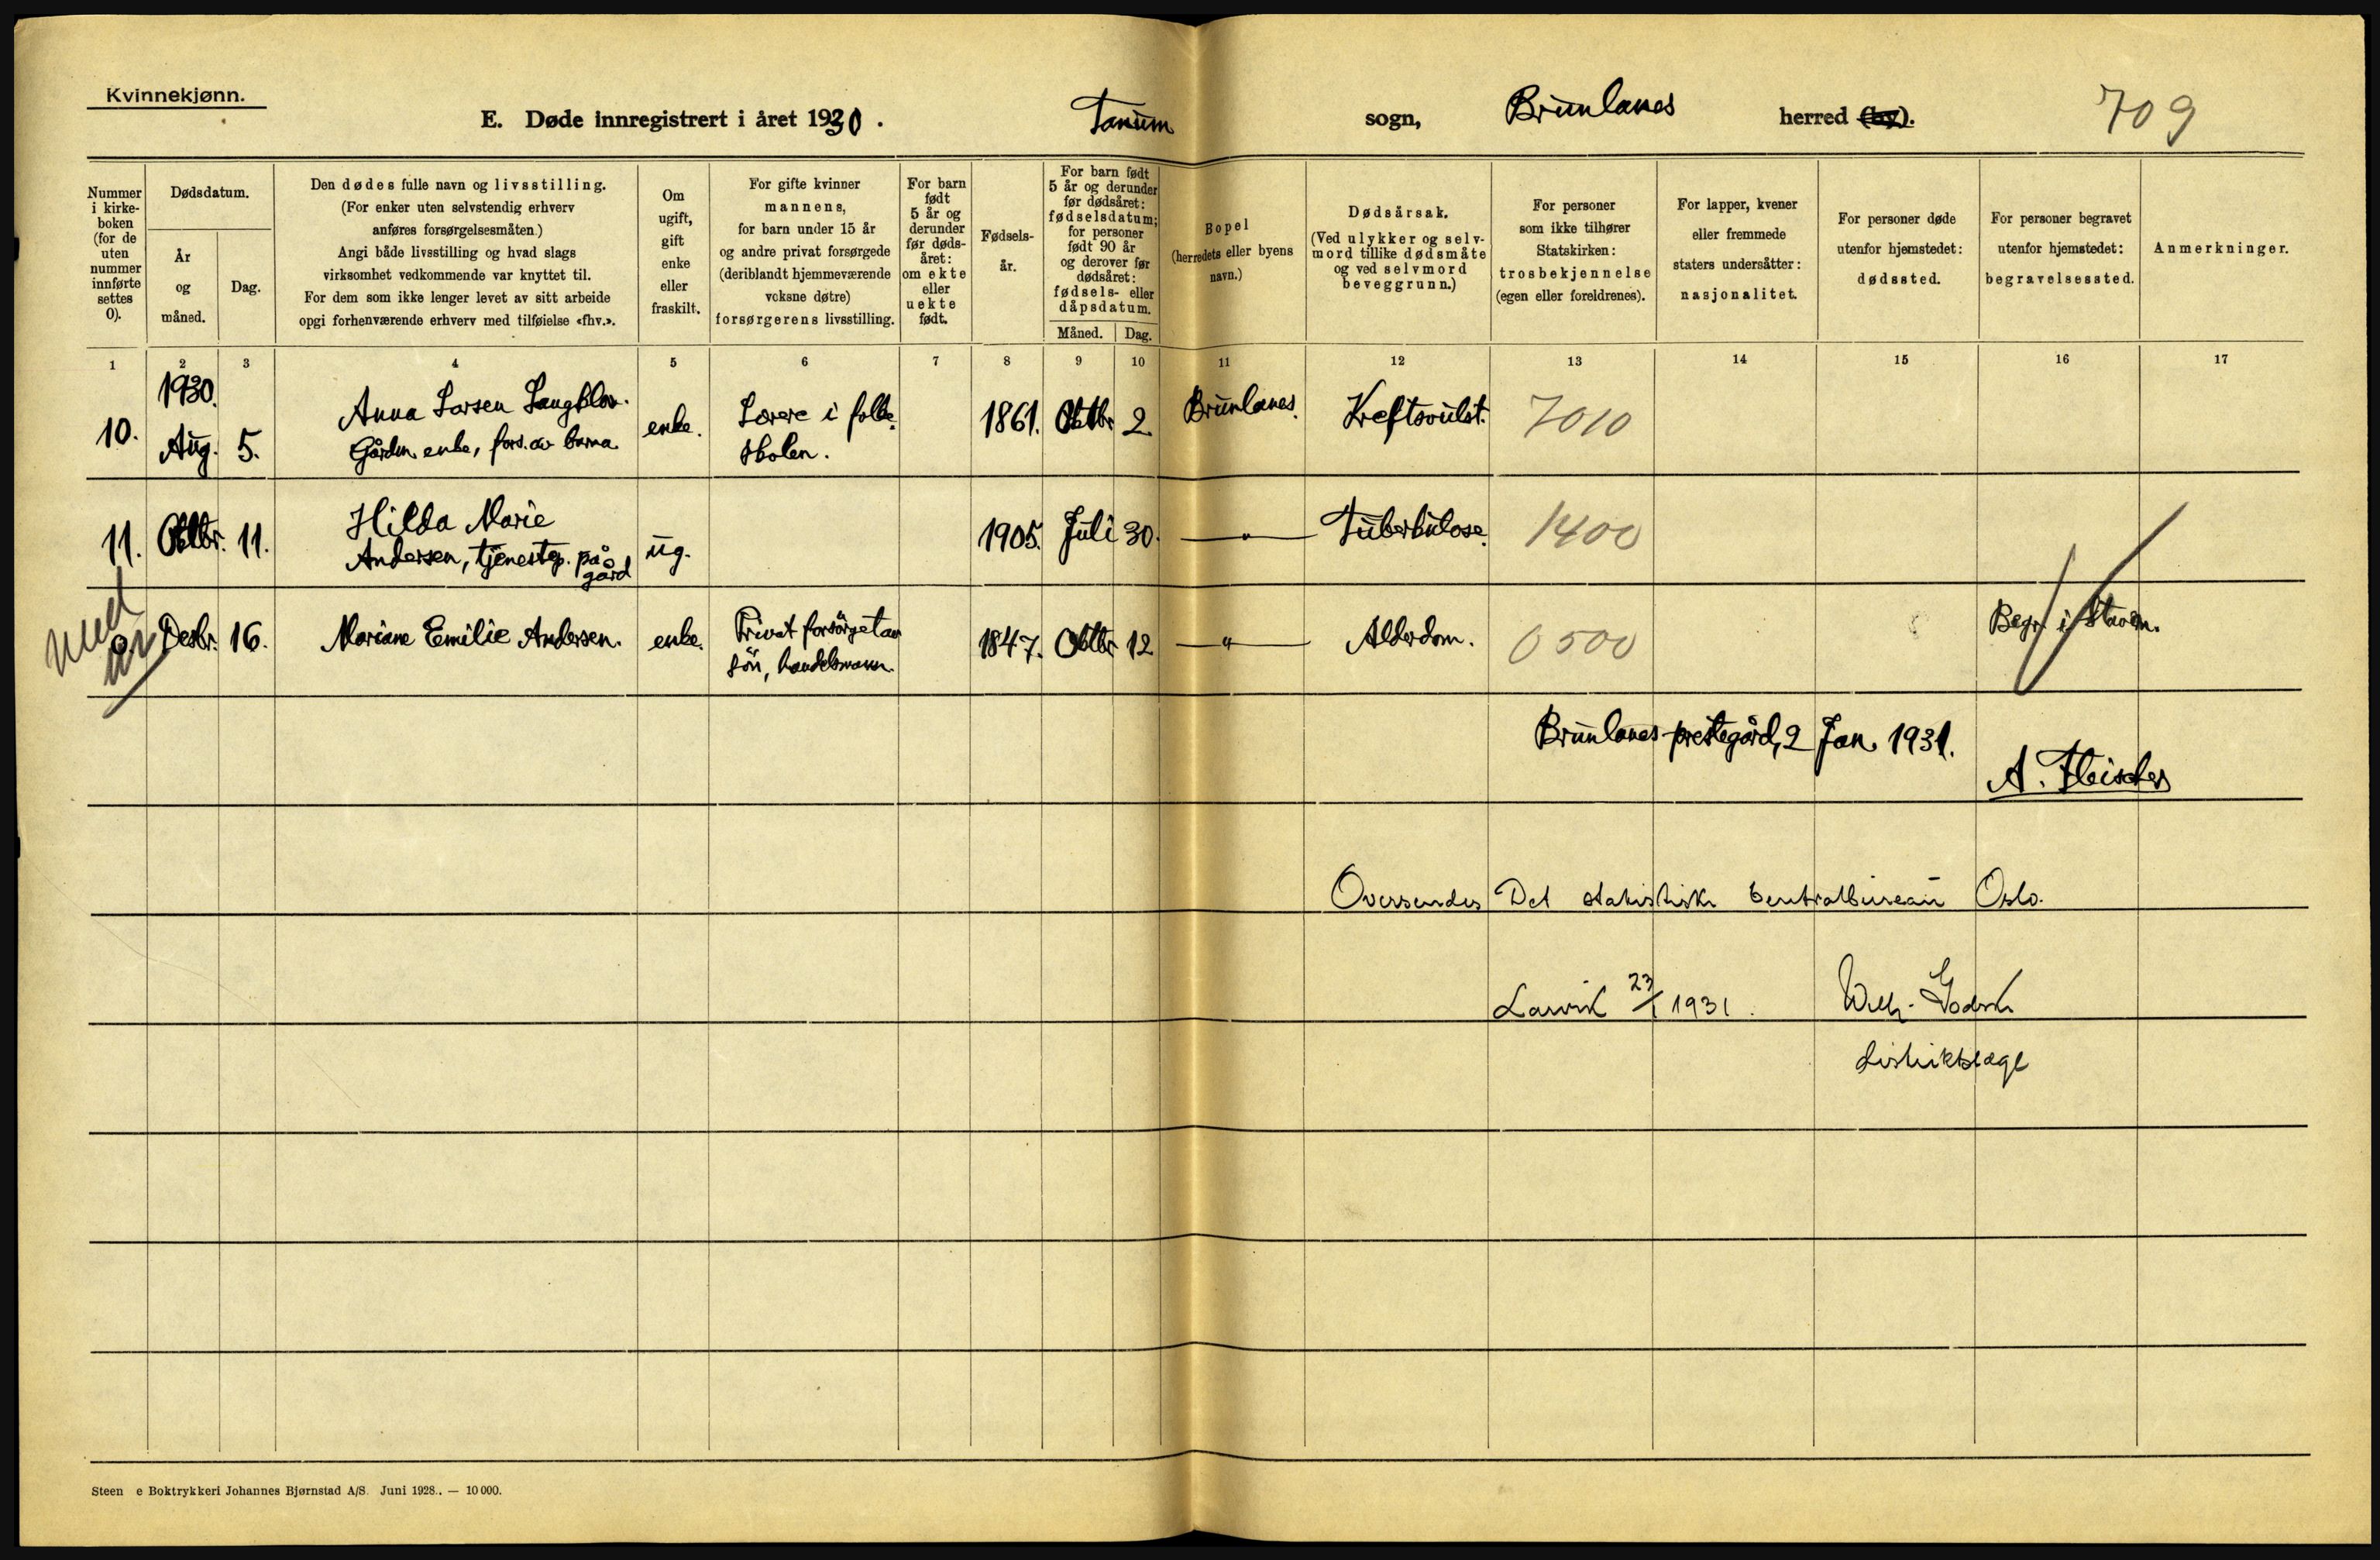 Kvinnekjønn.
E. Døde innregistrert i året 1930. Tanum sogn, Brunlanes herred (by). 709
Nummer i kirkeboken (for de uten nummer innførte settes 0).
Dødsdatum.
År og måned.
Dag.
Den dødes fulle navn og livsstilling.
(For enker uten selvstendig erhverv
anføres forsørgelsesmåten.)
Angi både livsstilling og hvad slags
virksomhet vedkommende var knyttet til.
For dem som ikke lenger levet av sitt arbeide
opgi forhenværende erhverv med tilføielse «fhv.».
Om ugift, gift enke eller fraskilt.
For gifte kvinner
mannens,
for barn under 15 år
og andre privat forsørgede
(deriblandt hjemmeværende
voksne døtre)
forsørgerens livsstilling.
For barn født 5 år og derunder før dødsåret: om ekte eller uekte født.
Fødselsår.
For barn født
5 år og derunder
før dødsåret:
fødselsdatum;
for personer
født 90 år
og derover før
dødsåret:
fødsels- eller
dåpsdatum.
Måned. Dag.
Bopel
(herredets eller byens
navn.)
Dødsårsak.
(Ved ulykker og selvmord tillike dødsmåte
og ved selvmord
beveggrunn.)
For personer
som ikke tilhører
Statskirken:
trosbekjennelse
(egen eller foreldrenes).
For lapper, kvener
eller fremmede
staters undersåtter:
nasjonalitet.
For personer døde
utenfor hjemstedet:
dødssted.
For personer begravet
utenfor hjemstedet:
begravelsessted.
Anmerkninger.
1 2 3 4 5 6 7 8 9 10 11 12 13 14 15 16 17
1930.
10. Aug. 5. Anna Larsen enke. Lærere i folke 1861. Oktbr 2 Brunlanes. Kreftsvulst. 7010
enke, fors. av barna skolen.
11. Oktbr. 11. Hilda Marie ug. 1905. Juli 30. " Tuberkulose. 1400
Andersen, tjenestep. på
gård
0. Desbr. 16. Mariane Emilie Andersen. enke. Privat forsörget av 1847. Oktbr 12 " Alderdom. 0500 Begr. i Stavern.
sön, handelsmann.
Brunlanes prestegård, 2 Jan. 1931.
A. Fleischer
Oversendes Det statistiske Centralbureau Oslo.
Larvik 23/1 1931. Wilh.
Distriktslæge
Steen e Boktrykkeri Johannes Bjørnstad A/S. Juni 1928. — 10 000.